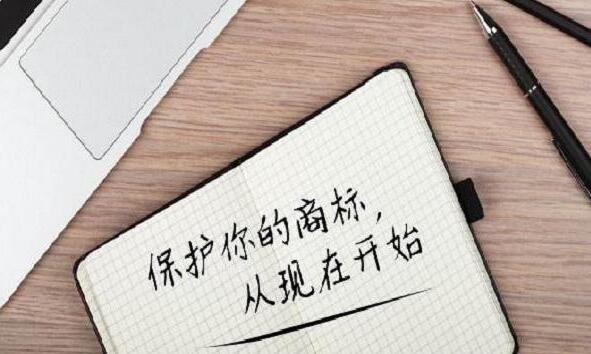 保护你的商标，
从现在开始